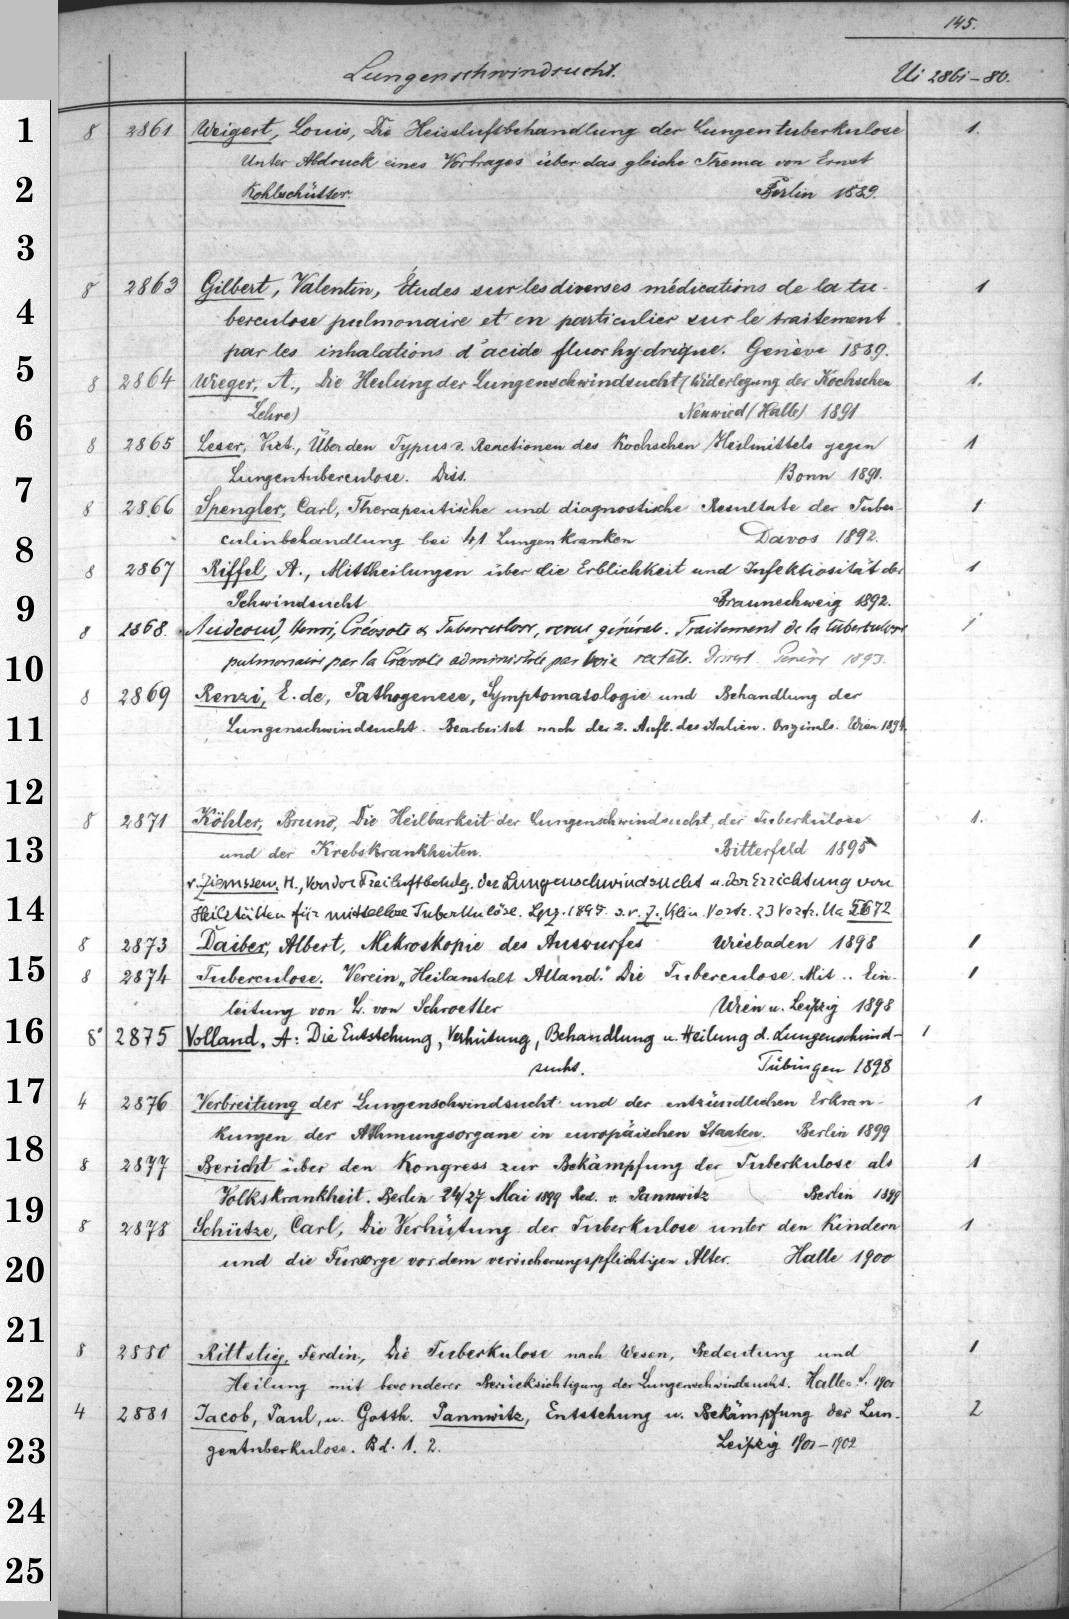 145.
Lungenschwindsucht. Ui 2861-80.
8 2861 Weigert, Louis, Die Heissluftbehandlung der Lungentuberkulose 1.
Unter Abdruck eines Vortrages über das gleiche Thema von Ernst
Kohlschütter. Berlin 1889.
8 2863 Gilbert, Valentin, Études sur les diverses médications de la tu- 1
berculose pulmonaire et en particulier sur le traitement
par les inhalations d'acide fluorhydrique. Genève 1889.
8 2864 Wieger, A., Die Heilung der Lungenschwindsucht (Widerlegung der Kochschen 1.
Lehre) Neuwied (Halle) 1891
8 2865 Leser, Vict., Über den Typus d. Reactionen des Kochschen Heilmittels gegen 1
Lungentuberculose. Diss. Bonn 1891.
8 2866 Spengler, Carl, Therapeutische und diagnostische Resultate der Tuber- 1
culinbehandlung bei 41 Lungenkranken Davos 1892.
8 2867 Riffel, A., Mittheilungen über die Erblichkeit und Infektiosität der 1
Schwindsucht Braunschweig 1892.
8 2868. Audeoud, Henri, Créosote & Tuberculose, revue générale. Traitement de la tuberculose 1
pulmonaire par la Créosote administrée par voie rectale. Dissert. Genève 1893.
8 2869 Renzi, E. de, Pathogenese, Symptomatologie und Behandlung der
Lungenschwindsucht. Bearbeitet nach der 2. Aufl. des italien. Originals. Wien 1894.
8 2871 Köhler, Bruno, Die Heilbarkeit der Lungenschwindsucht, der Tuberkulose 1.
und der Krebskrankheiten. Bitterfeld 1895
v. Ziemssen, H., Von der Freiluftbehdlg. der Lungenschwindsucht u. der Errichtung von
Heilstätten für mittellose Tuberkulöse. Lpz. 1895. s. v. Z. Klin. Vortr. 23 Vortr. Ua 5672
8 2873 Daiber, Albert, Mikroskopie des Auswurfes Wiesbaden 1898 1
8 2874 Tuberculose. Verein „Heilanstalt Alland." Die Tuberculose. Mit .. Ein- 1
leitung von L. von Schroetter Wien u. Leipzig 1898
8° 2875 Volland, A: Die Entstehung, Verhütung, Behandlung u. Heilung d. Lungenschwind- 1
sucht. Tübingen 1898
4 2876 Verbreitung der Lungenschwindsucht und der entzündlichen Erkran- 1
kungen der Athmungsorgane in europäischen Staaten. Berlin 1899
8 2877 Bericht über den Kongress zur Bekämpfung der Tuberkulose als 1
Volkskrankheit. Berlin 24/27 Mai 1899 Red. v. Pannwitz Berlin 1899
8 2878 Schütze, Carl, Die Verhütung der Tuberkulose unter den Kindern 1
und die Fürsorge vor dem versicherungspflichtigen Alter. Halle 1900
8 2880 Rittstieg, Ferdin., Die Tuberkulose nach Wesen, Bedeutung und 1
Heilung mit besonderer Berücksichtigung der Lungenschwindsucht. Halle a. S. 1901
4 2881 Jacob, Paul, u. Gotth. Pannwitz, Entstehung u. Bekämpfung der Lun- 2
gentuberkulose. Bd. 1. 2. Leipzig 1901-1902
1
2
3
4
5
6
7
8
9
10
11
12
13
14
15
16
17
18
19
20
21
22
23
24
25